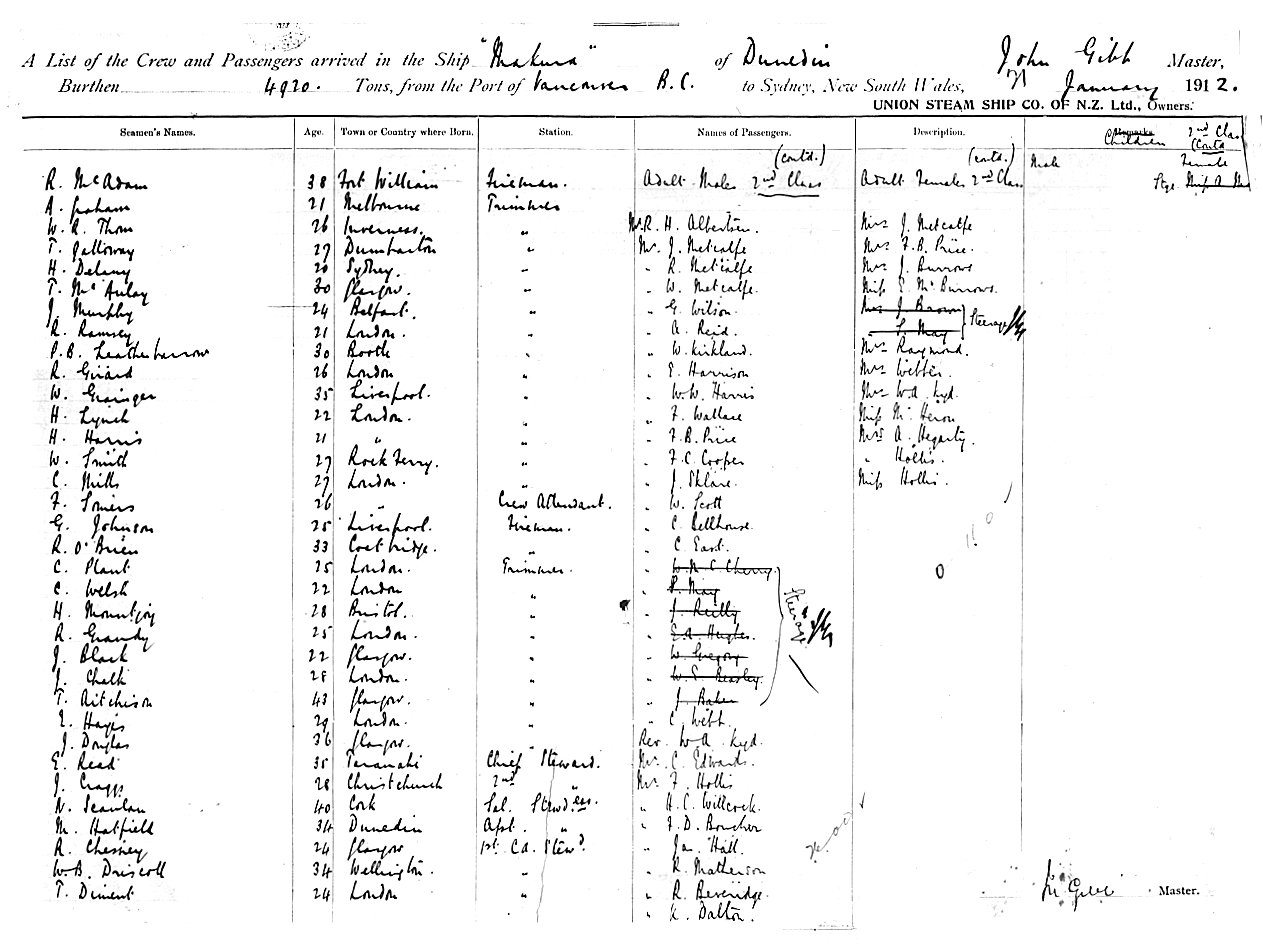 A List of the Crew and Passengers arrived in the Ship "Makura" of Dunedin John Gibb Master,
Burthen 4920. Tons, from the Port of Vancouver B.C. to Sydney, New South Wales, January 1912.
UNION STEAM SHIP CO. OF N.Z. Ltd., Owners.
Seamen's Names. Age. Town or Country where Born. Station. Names of Passengers. Description. Children 2nd Class (Contd
(contd.) (contd.) Male Female
R. McAdam 38 Fort William Fireman. Adult Males 2nd Class Adult Females 2nd Class Stge
A. Graham 21 Melbourne Trimmer
W. R. Thom 26 Inverness. " Mr. R. H. Albertsen. Mrs J. Metcalfe
T. Galloway 27 Dumbarton " Mr. J. Metcalfe Mrs F. B. Price.
H. Delany 20 Sydney. " " R. Metcalfe Mrs J. Burrows
T. McAulay 30 Glasgow. " " W. Metcalfe. Miss E. Mc Burrows.
J. Murphy 24 Belfast. " " G. Wilson. Mrs J. Brown
R. Ramsey 21 London. " " A. Reid. " L. May Steerage
P.B. Leatherbarrow 30 Bootle " " W. Kirkland. Mrs Raymond.
R. Girard 26 London " " E. Harrison Mrs Webber.
W. Grainger 35 Liverpool. " " W.W. Harris Mrs W.A. Kyd.
H. Lynch 22 London. " " F. Wallace Miss Mc Heron
H. Harris 21 " " " F. B. Price Mrs A. Hegarty.
W. Smith 27 Rock Ferry. " " F. C. Cooper " Hollis.
C. Mills 27 London. " " J. Sklare. Miss Hollis.
F. Somers 26 " Crew Attendant. " W. Scott
G. Johnson 25 Liverpool. Fireman. " C. Bellhouse.
R. O'Brien 33 Coatbridge. " " C. East.
C. Plant 25 London. Trimmer. " W. M. C. Cherry
C. Welsh 22 London " " P. May
H. Mountjoy 28 Bristol. " " J. Reilly Steerage
R. Grandy 25 London. " " E.A. Hughes.
J. Black 22 Glasgow. " " W. Gregory
J. Chalk 28 London. " " W. E. Beasley.
T. Aitchison 43 Glasgow. " " J. Baker
E. Hayes 29 London. " " C. Webb.
J. Douglas 36 Glasgow. " Rev. W.A. Kyd.
E. Read 35 Taranaki Chief Steward. Mr. C. Edwards.
J. Craggs 28 Christchurch 2nd " Mr. F. Hollis
N. Scanlan 40 Cork Sal. Stewdess. " H. C. Willcock.
M. Hatfield 34 Dunedin Asst. " " F. D. Boucher
R. Chesney 24 Glasgow 1st Cl. Stewd. " Jas. Hall.
W.B. Driscoll 34 Wellington. " " R. Matherson
T. Diment 24 London " " R. Beveridge. Master.
" K. Dalton.